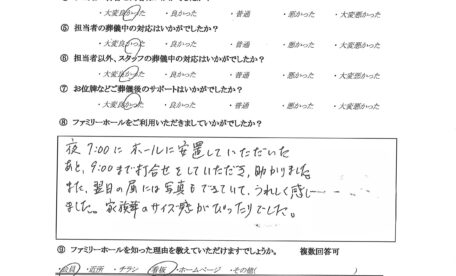 ・大変良かった ・良かった ・普通 ・悪かった ・大変悪かった
⑤ 担当者の葬儀中の対応はいかがでしたか？
・大変良かった ・良かった ・普通 ・悪かった ・大変悪かった
⑥ 担当者以外、スタッフの葬儀中の対応はいかがでしたか？
・大変良かった ・良かった ・普通 ・悪かった ・大変悪かった
⑦ お位牌などご葬儀後のサポートはいかがでしたか？
・大変良かった ・良かった ・普通 ・悪かった ・大変悪かった
⑧ ファミリーホールをご利用いただきましていかがでしたか？
夜7:00に ホールに安置していただいた
あと、9:00まで打合せをしていただき、助かりました。
また、翌日の昼には写真もできていて、うれしく感じ
ました。家族葬のサイズ感がぴったりでした。
⑨ ファミリーホールを知った理由を教えていただけますでしょうか。 複数回答可
・会員 ・近所 ・チラシ ・看板 ・ホームページ ・その他( )